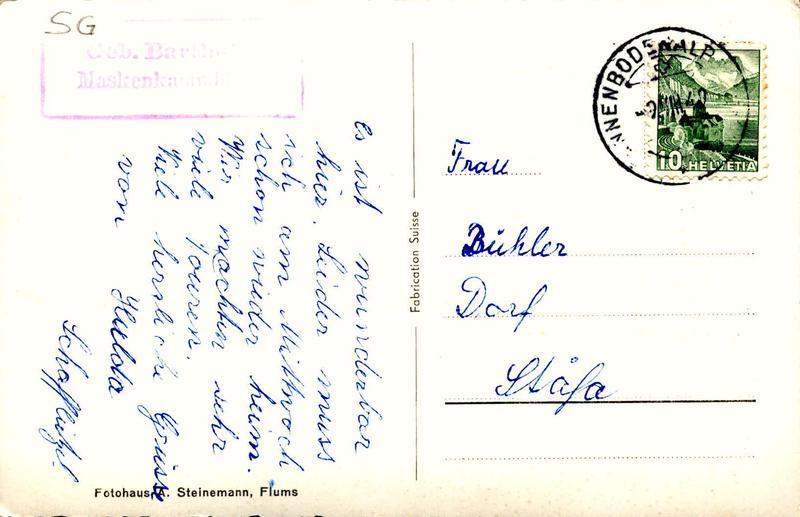 SG
Geb. Barth
Maskenka
Es ist wunderbar
hier. Leider muss
ich am Mittwoch
schon wieder heim.
Wir machten sehr
viele Touren.
Viele herzliche Grüsse
von Hulda
Fabrication Suisse
NNENBODENALP
10 HELVETIA
Frau
Bühler
Dorf
Stäfa
Fotohaus A. Steinemann, Flums